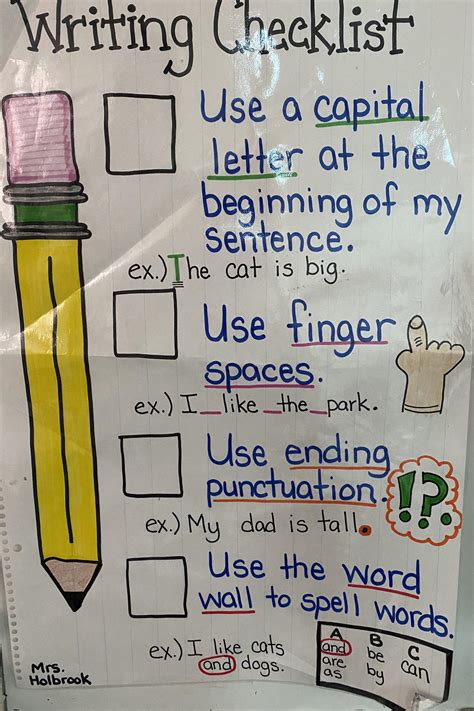 Writing Checklist
Use a capital
letter at the
beginning of my
sentence.
ex.) The cat is big.
Use finger
spaces.
ex.) I_like_the_park.
Use ending
punctuation.
!?.
ex.) My dad is tall.
Use the word
wall to spell words.
ex.) I like cats
and dogs.
A B C
and be can
are by
as
Mrs.
Holbrook